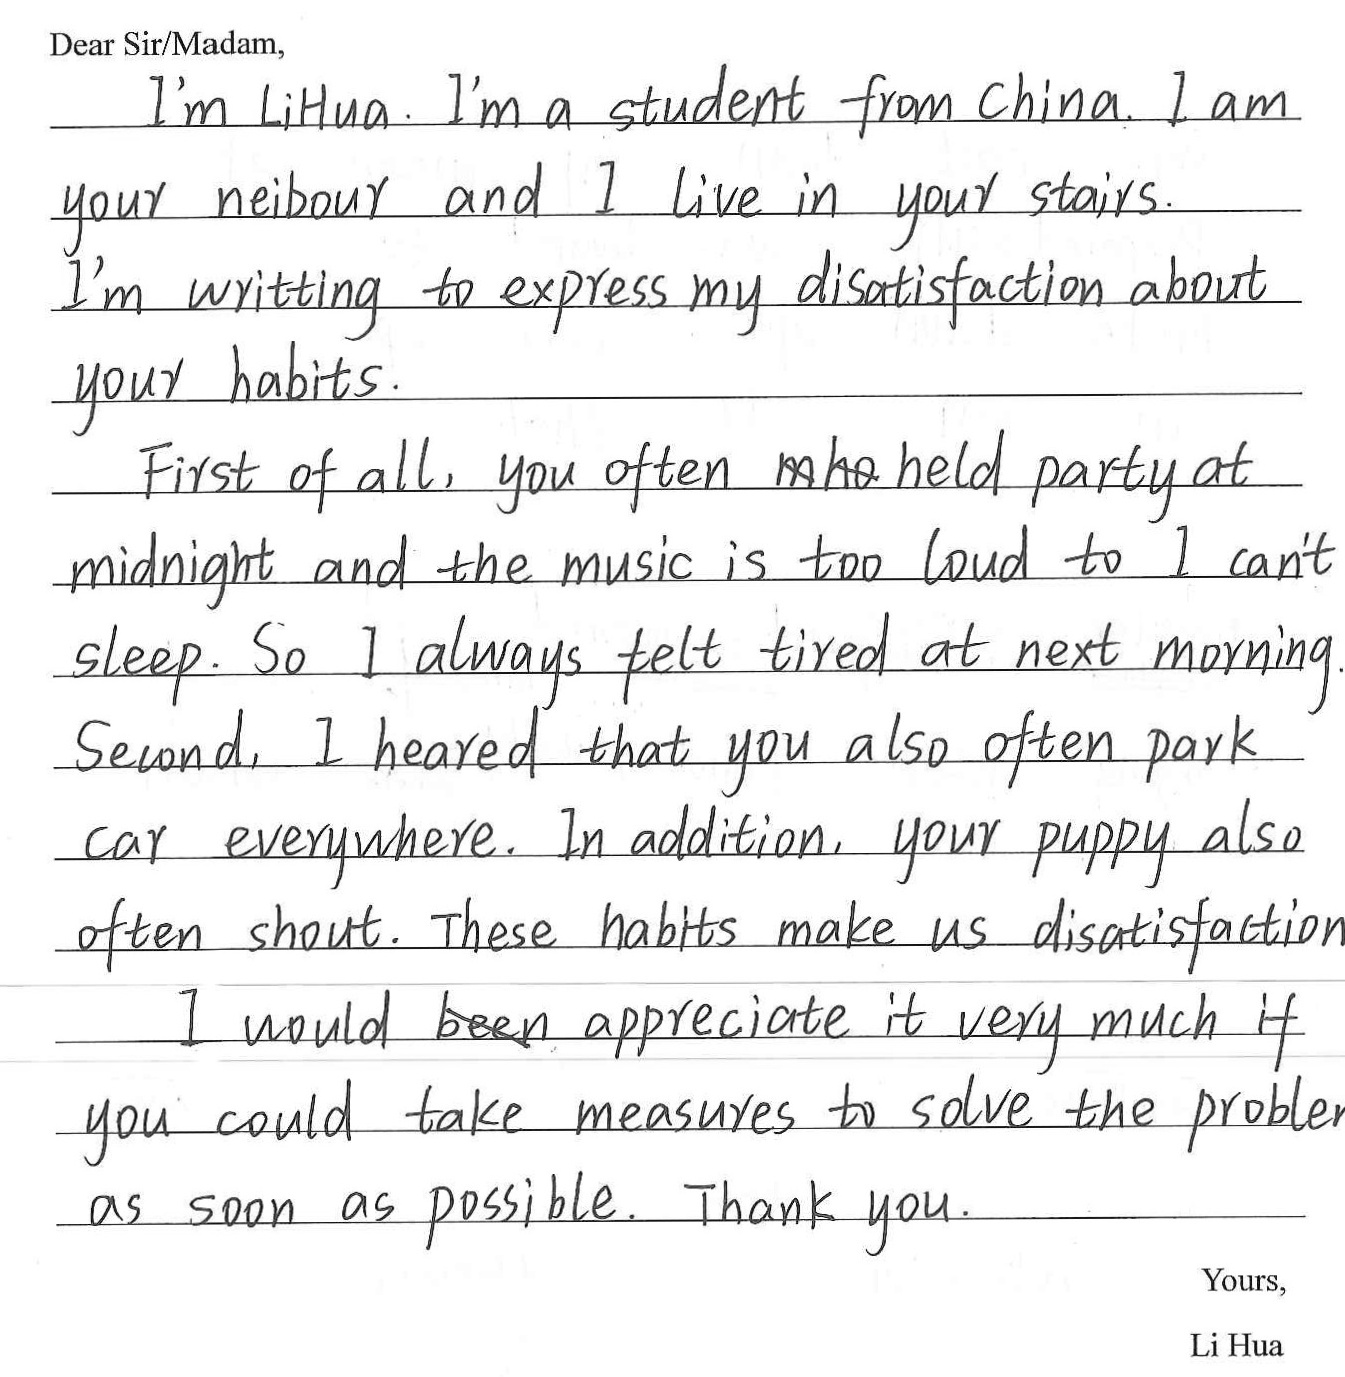 Dear Sir/Madam,
I'm LiHua. I'm a student from China. I am
your neibour and I live in your stairs.
I'm writting to express my disatisfaction about
your habits.
First of all, you often held party at
midnight and the music is too loud to I can't
sleep. So I always felt tired at next morning.
Second, I heared that you also often park
car everywhere. In addition, your puppy also
often shout. These habits make us disatisfaction
I would been appreciate it very much if
you could take measures to solve the problem
as soon as possible. Thank you.
Yours,
Li Hua